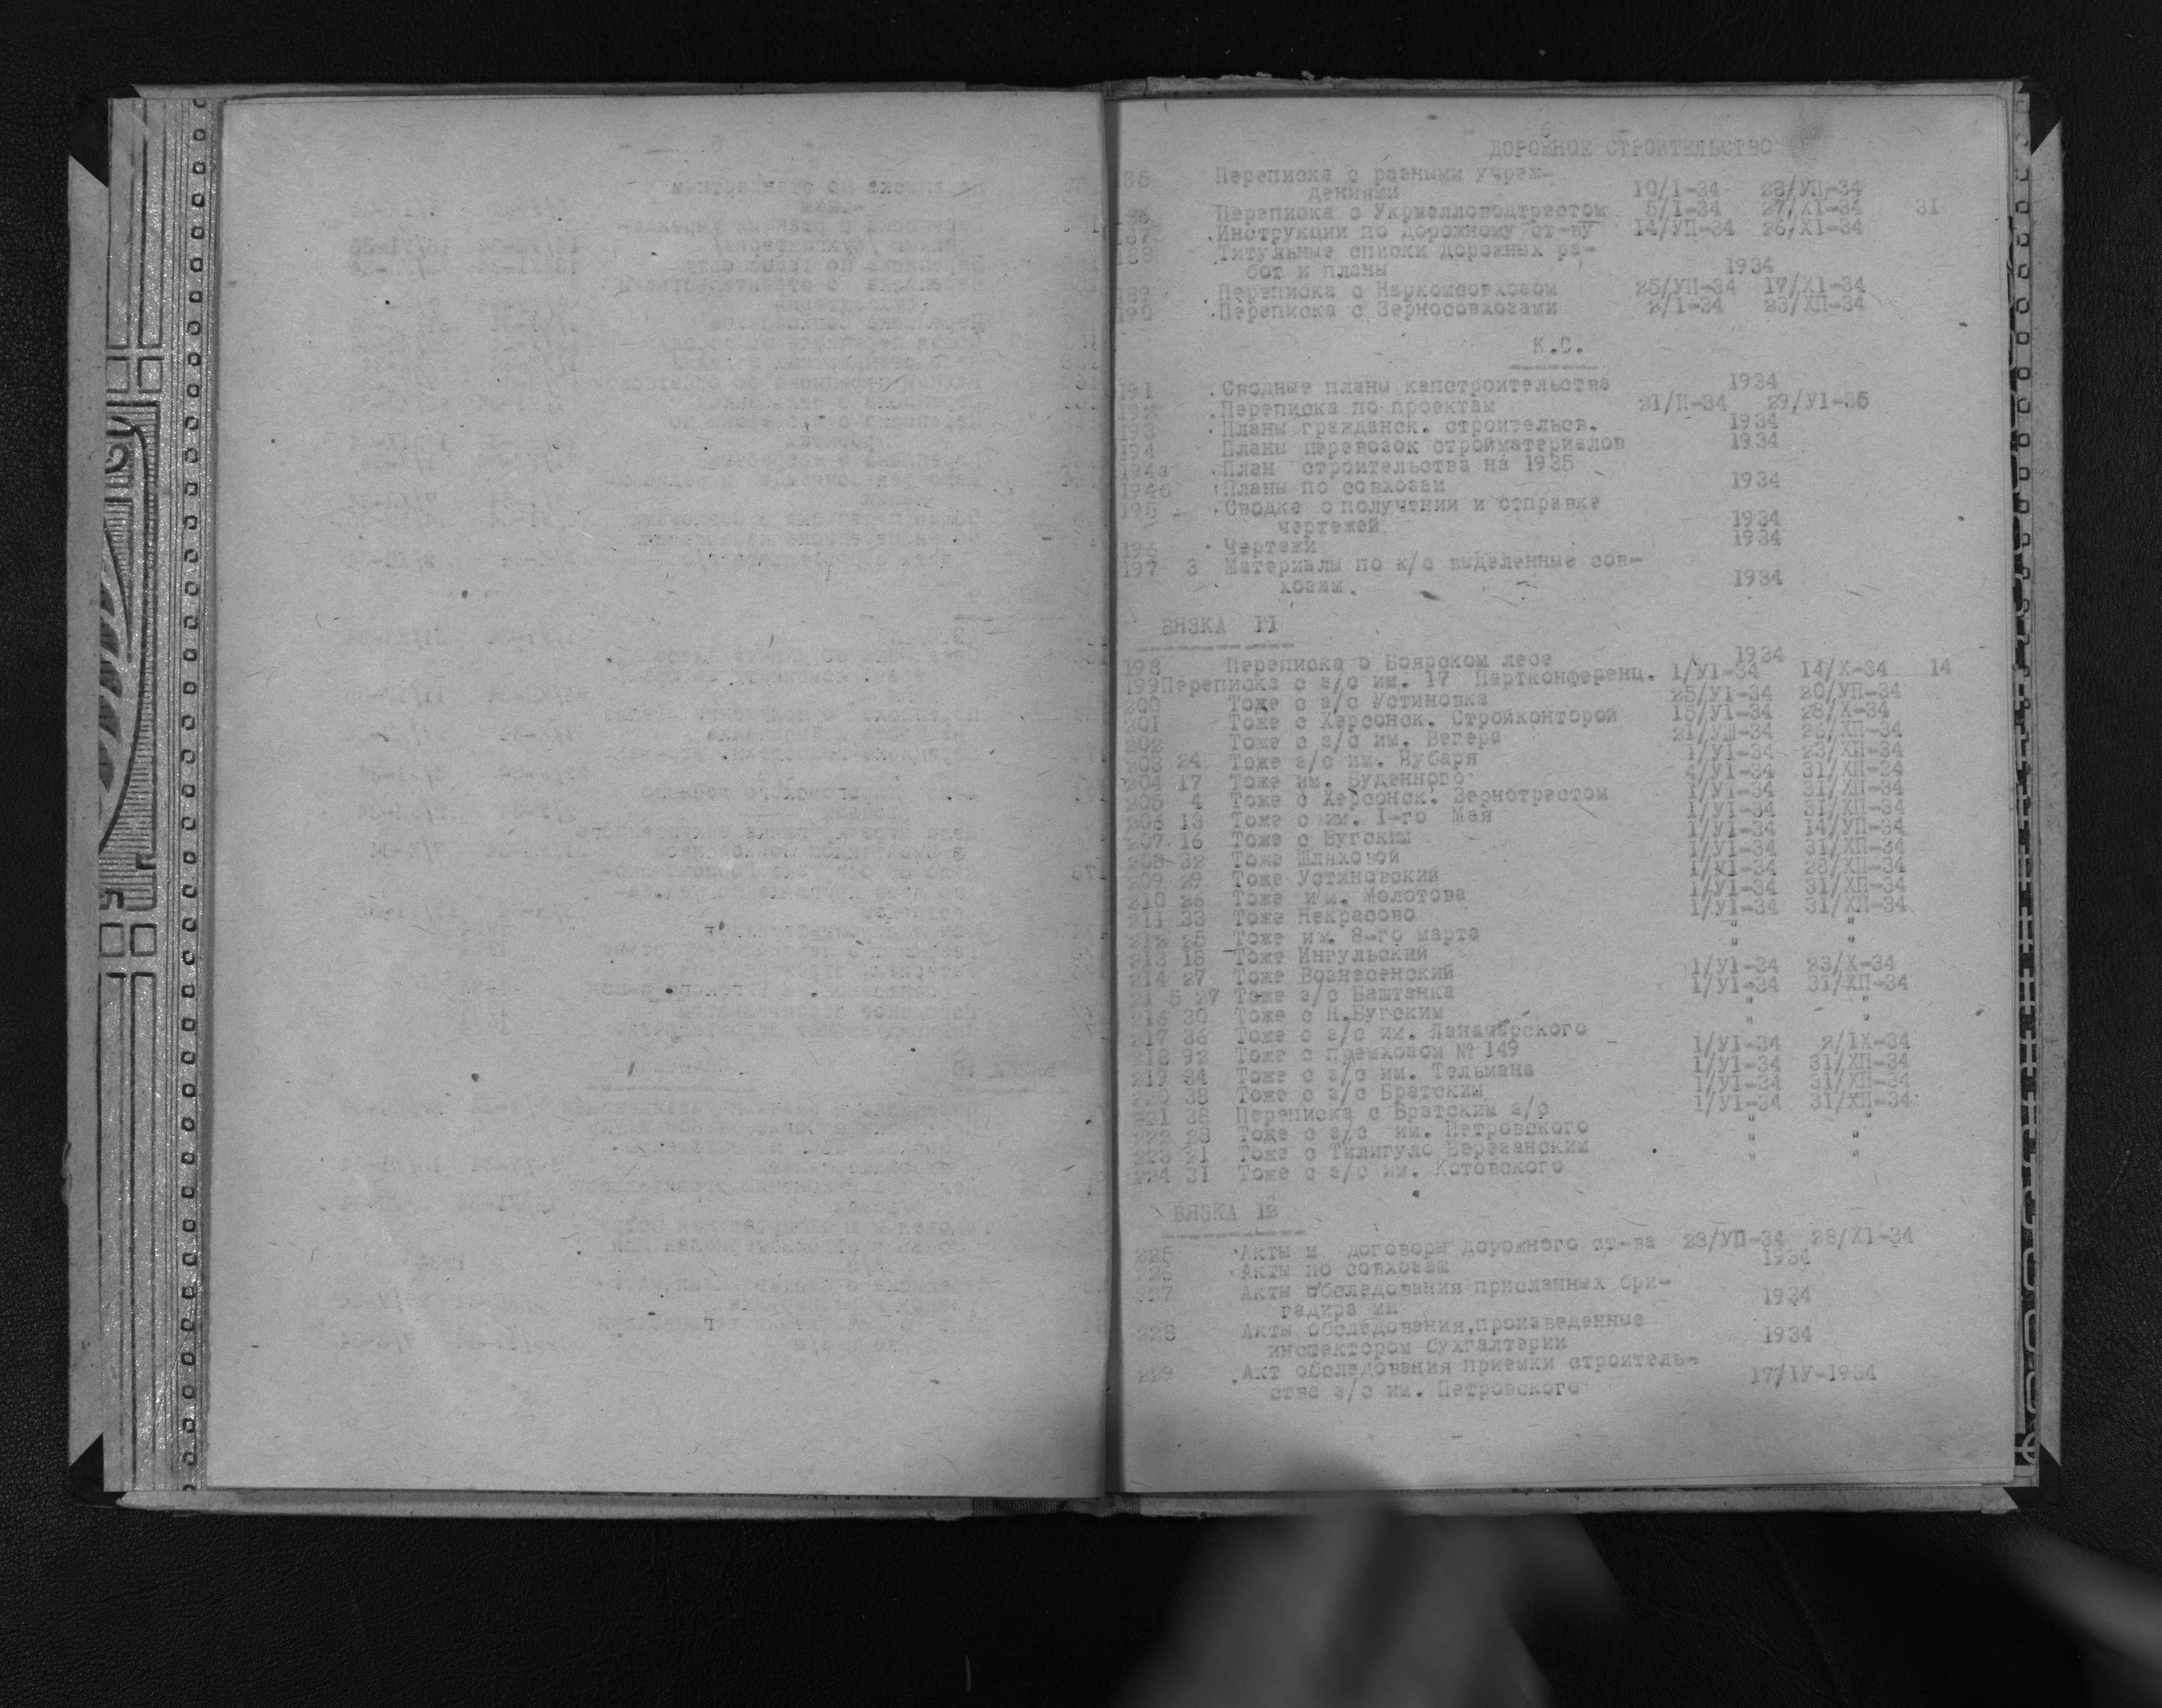 - 6 -
ДОРОЖНОЕ СТРОИТЕЛЬСТВО
Переписка с разными учреж-
дениями 10/I-34 28/УП-34
Переписка с Укрмелловодтрестом 5/I-34 27/XI-34 31
187 Инструкции по дорожному ст-ву 14/УП-34 26/XI-34
188 Титульные списки дорожных ра-
бот и планы 1934
189 Переписка с Наркомсовхозом 25/УП-34 17/XI-34
190 Переписка с Зерносовхозами 2/I-34 23/ХП-34
К.С.
191 Сводные планы капстроительства 1934
192 Переписка по проектам 21/П-34 29/У1-35
193 Планы гражданск. строительсв. 1934
194 Планы перевозок стройматериалов 1934
194а План строительства на 1935
194б Планы по совхозам 1934
195 Сводка о получении и отправке
чертежей 1934
196 Чертежи 1934
197 3 Материалы по к/с выделенные сов-
хозам. 1934
ВЯЗКА 11
198 Переписка о Боярском лесе 1934
199 Переписка с з/с им. 17 Партконференц. 1/У1-34 14/Х-34 14
200 Тоже с з/с Устиновка 25/У1-34 20/УП-34
201 Тоже с Херсонск. Стройконторой 15/У1-34 28/Х-34
202 Тоже с з/с им. Вегера 21/УШ-34 26/ХП-34
203 24 Тоже з/с им. Чубаря 1/У1-34 23/ХП-34
204 17 Тоже им. Буденного 4/У1-34 31/ХП-34
205 4 Тоже с Херсонск. Зернотрестом 1/У1-34 31/ХП-34
206 13 Тоже с им. 1-го Мая 1/У1-34 31/ХП-34
207 16 Тоже с Бугским 1/У1-34 14/УП-34
208 32 Тоже Шляховой 1/У1-34 31/ХП-34
209 29 Тоже Устиновский 1/У1-34 26/ХП-34
210 26 Тоже им. Молотова 1/У1-34 31/ХП-34
211 33 Тоже Некрасово 1/У1-34 31/ХП-34
212 25 Тоже им. 8-го марта " "
213 18 Тоже Ингульский " "
214 27 Тоже Вознесенский 1/У1-34 23/Х-34
21 5 27 Тоже з/с Баштанка 1/У1-34 31/ХП-34
216 30 Тоже с Н.Бугским " "
217 36 Тоже с з/с им. Луначарского " "
218 92 Тоже с премхозом № 149 1/У1-34 2/1Х-34
219 34 Тоже с з/с им. Тельмана 1/У1-34 31/ХП-34
220 38 Тоже с з/с Братским 1/У1-34 31/ХП-34
221 38 Переписка с Братским з/с 1/У1-34 31/ХП-34
222 28 Тоже с з/с им. Петровского " "
223 21 Тоже с Тилигуло Березанским " "
224 31 Тоже с з/с им. Котовского " "
ВЯЗКА 12
225 Акты и договоры дорожного ст-ва 23/УП-34 28/Х1-34
226 Акты по совхозам 1934
227 Акты обследования присланных бри-
гадира ми 1934
228 Акты обследования,произведенные
инспектором бухгалтерии 1934
229 Акт обследования приемки строитель-
ства з/с им. Петровского 17/1У-1934